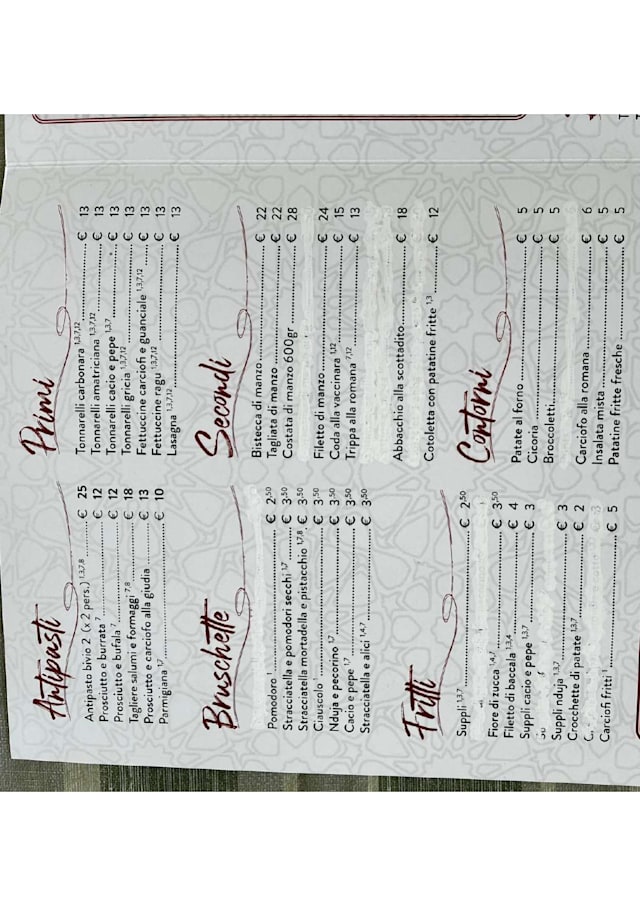 Antipasti
Antipasto bivio 2 (x 2 pers.) 1,3,7,8 € 25
Prosciutto e burrata 7 € 12
Prosciutto e bufala 7 € 12
Tagliere salumi e formaggi 7,8 € 18
Prosciutto e carciofo alla giudia € 13
Parmigiana 1,7 € 10
Bruschette
Pomodoro 1 € 2,50
Stracciatella e pomodori secchi 1,7 € 3,50
Stracciatella mortadella e pistacchio 1,7,8 € 3,50
Ciauscolo 1 € 3,50
Nduja e pecorino 1,7 € 3,50
Cacio e pepe 1,7 € 3,50
Stracciatella e alici 1,4,7 € 3,50
Fritti
Suppli 1,3,7 € 2,50
Fiore di zucca 1,4,7 € 3,50
Filetto di baccala 1,3,4 € 4
Suppli cacio e pepe 1,3,7 € 3
Suppli nduja 1,3,7 € 3
Crocchette di patate 1,3,7 € 2
Carciofi fritti 1 € 5
Primi
Tonnarelli carbonara 1,3,7,12 € 13
Tonnarelli amatriciana 1,3,7,12 € 13
Tonnarelli cacio e pepe 1,3,7 € 13
Tonnarelli gricia 1,3,7,12 € 13
Fettuccine carciofi e guanciale 1,3,7,12 € 13
Fettuccine ragu 1,3,7,12 € 13
Lasagna 1,3,7,12 € 13
Secondi
Bistecca di manzo € 22
Tagliata di manzo € 22
Costata di manzo 600gr € 28
Filetto di manzo € 24
Coda alla vaccinara 1,12 € 15
Trippa alla romana 7,12 € 13
Abbacchio alla scottadito € 18
Cotoletta con patatine fritte 1,3 € 12
Contorni
Patate al forno € 5
Cicoria € 5
Broccoletti € 5
Carciofo alla romana € 6
Insalata mista € 5
Patatine Fritte fresche € 5